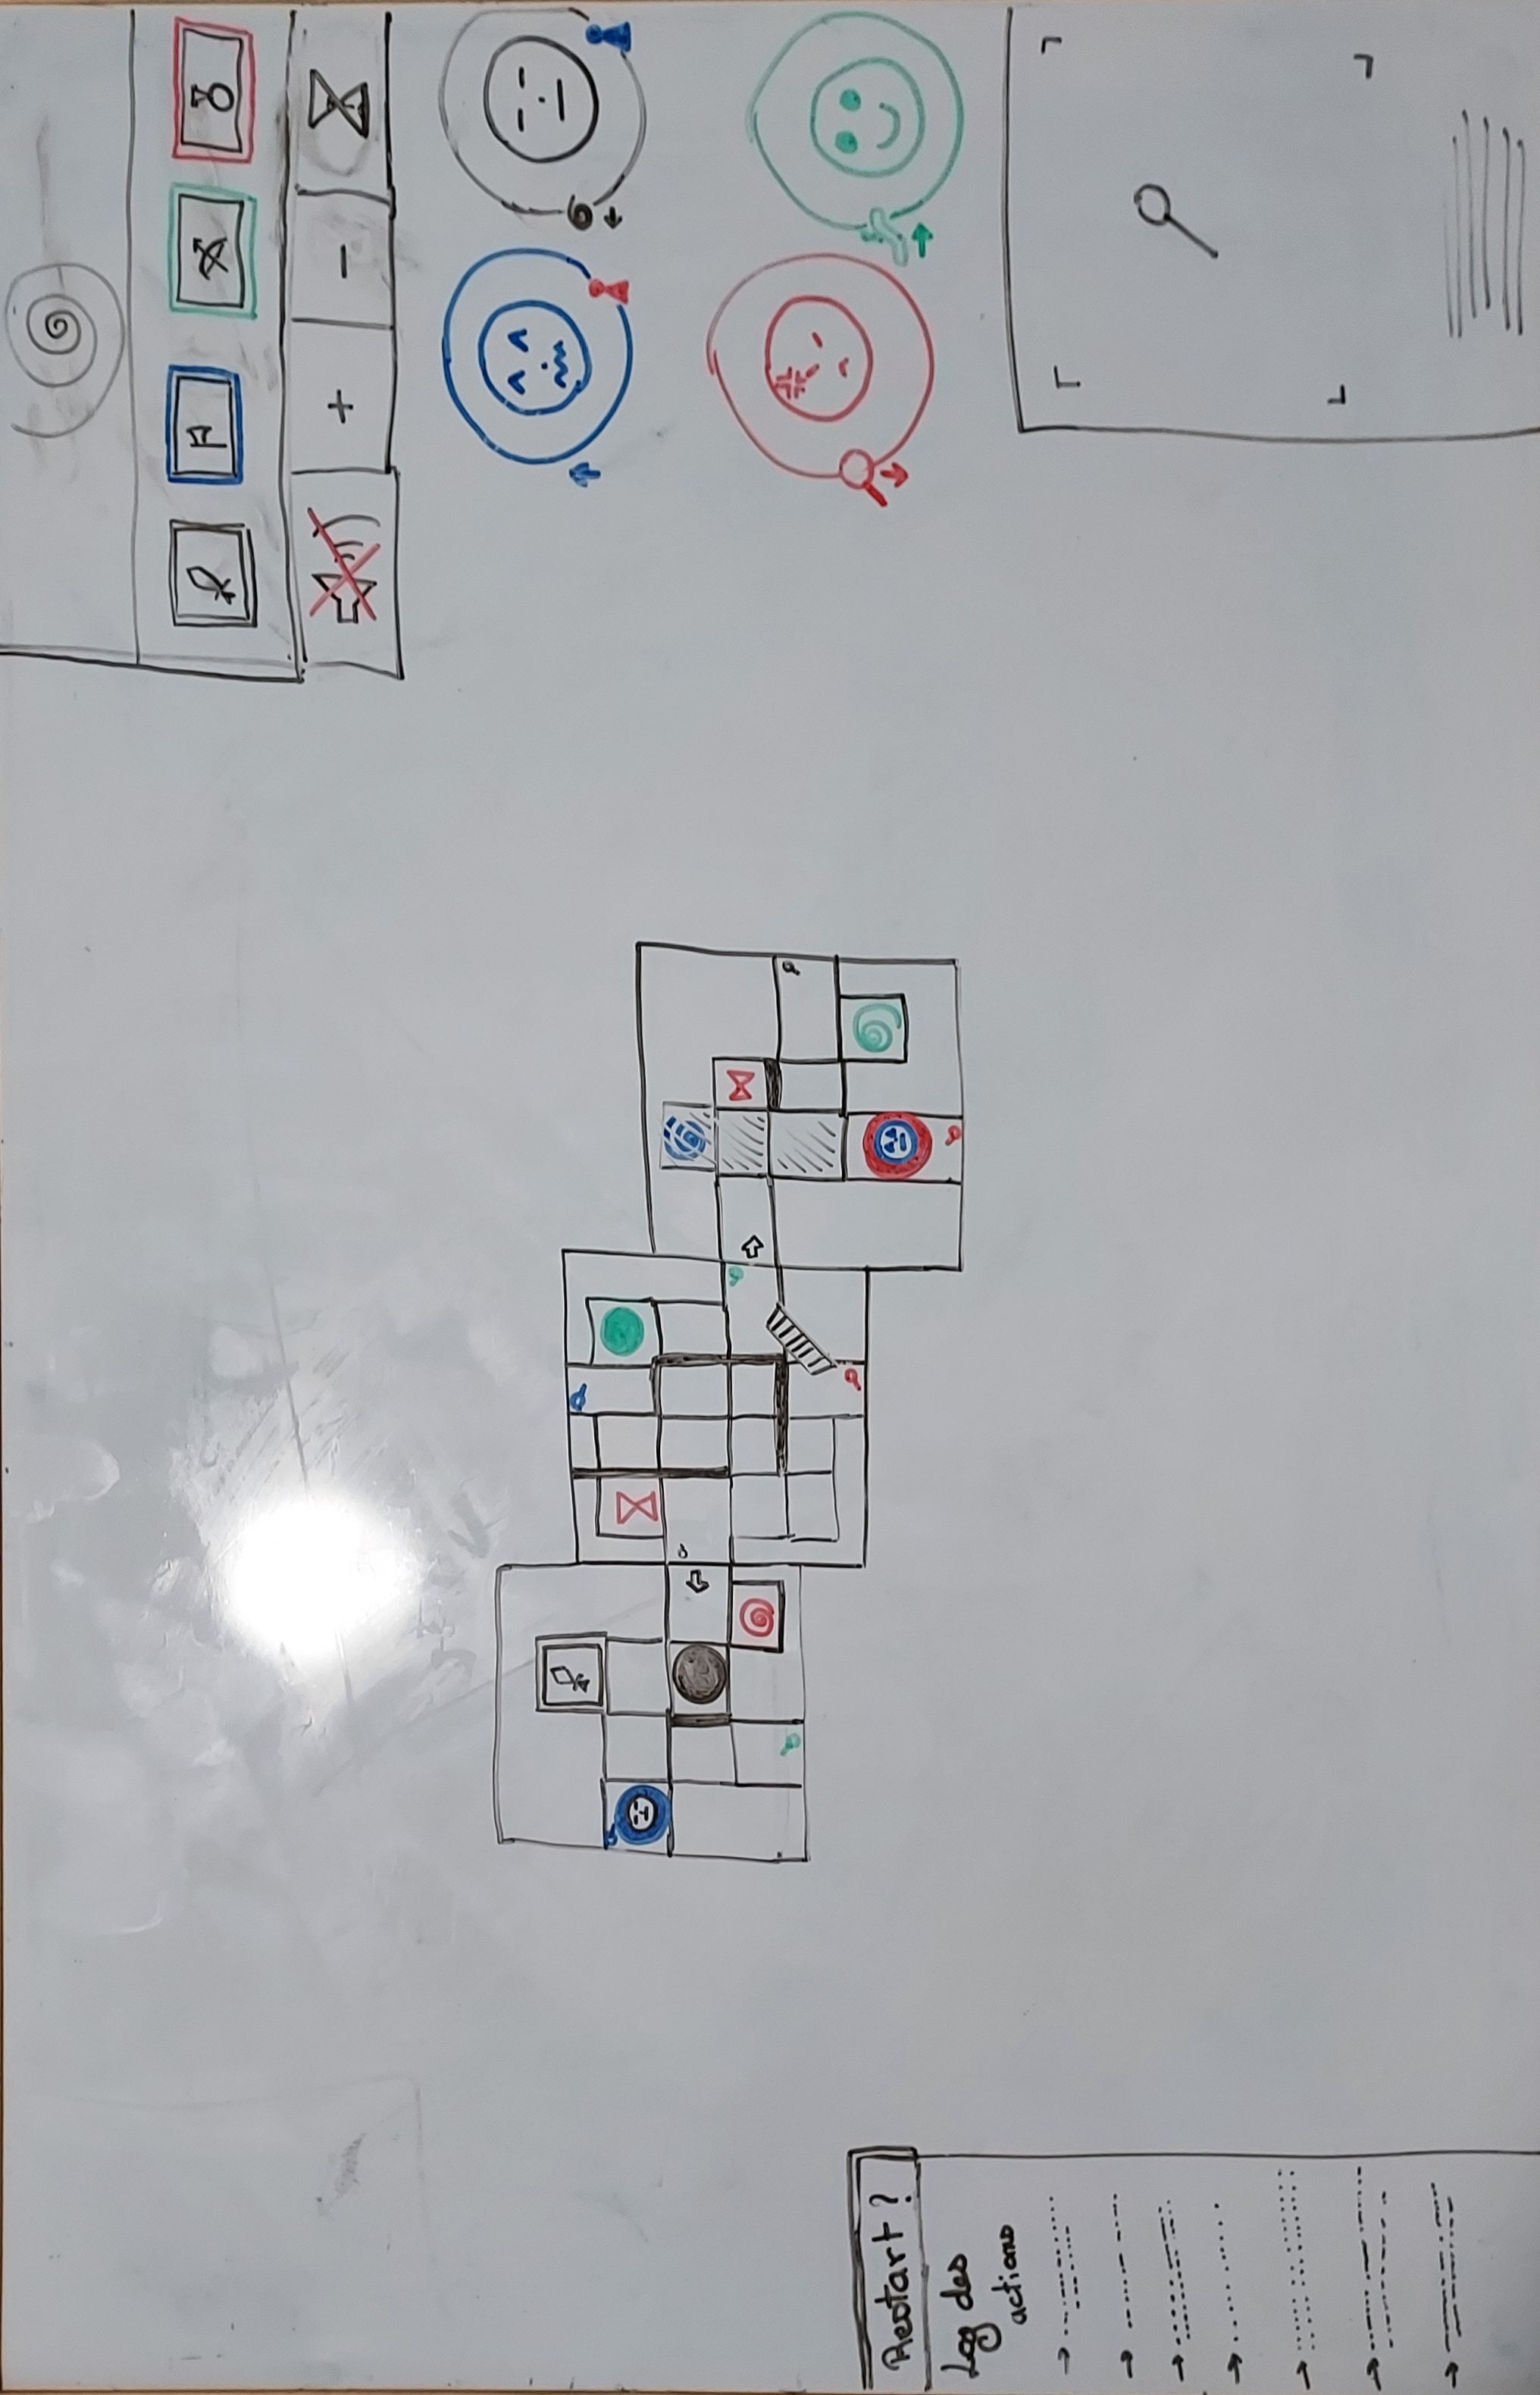 Restart ?
Log des
actions